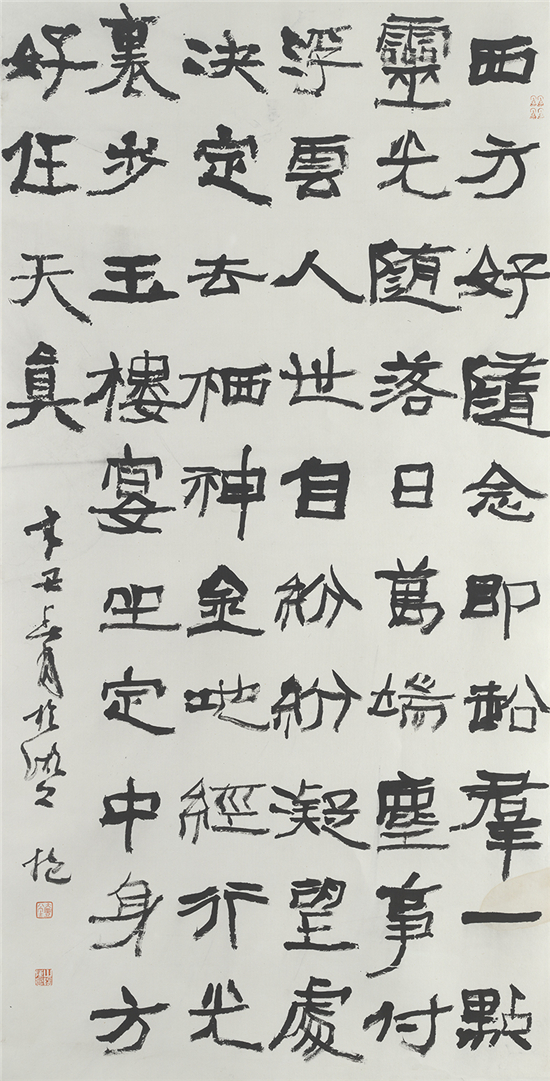 西方好隨念即超羣一點
靈光隨落日萬端塵事付
浮雲人世自紛紛凝望處
决定去栖神金地經行光
裏步玉樓宴坐定中身方
好任天真
辛丑月於